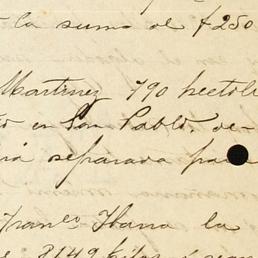 la suma de $250
Martinez 790 hectoli
en San Pablo, de-
separada para
Franco Ibarra la
8149 kilos